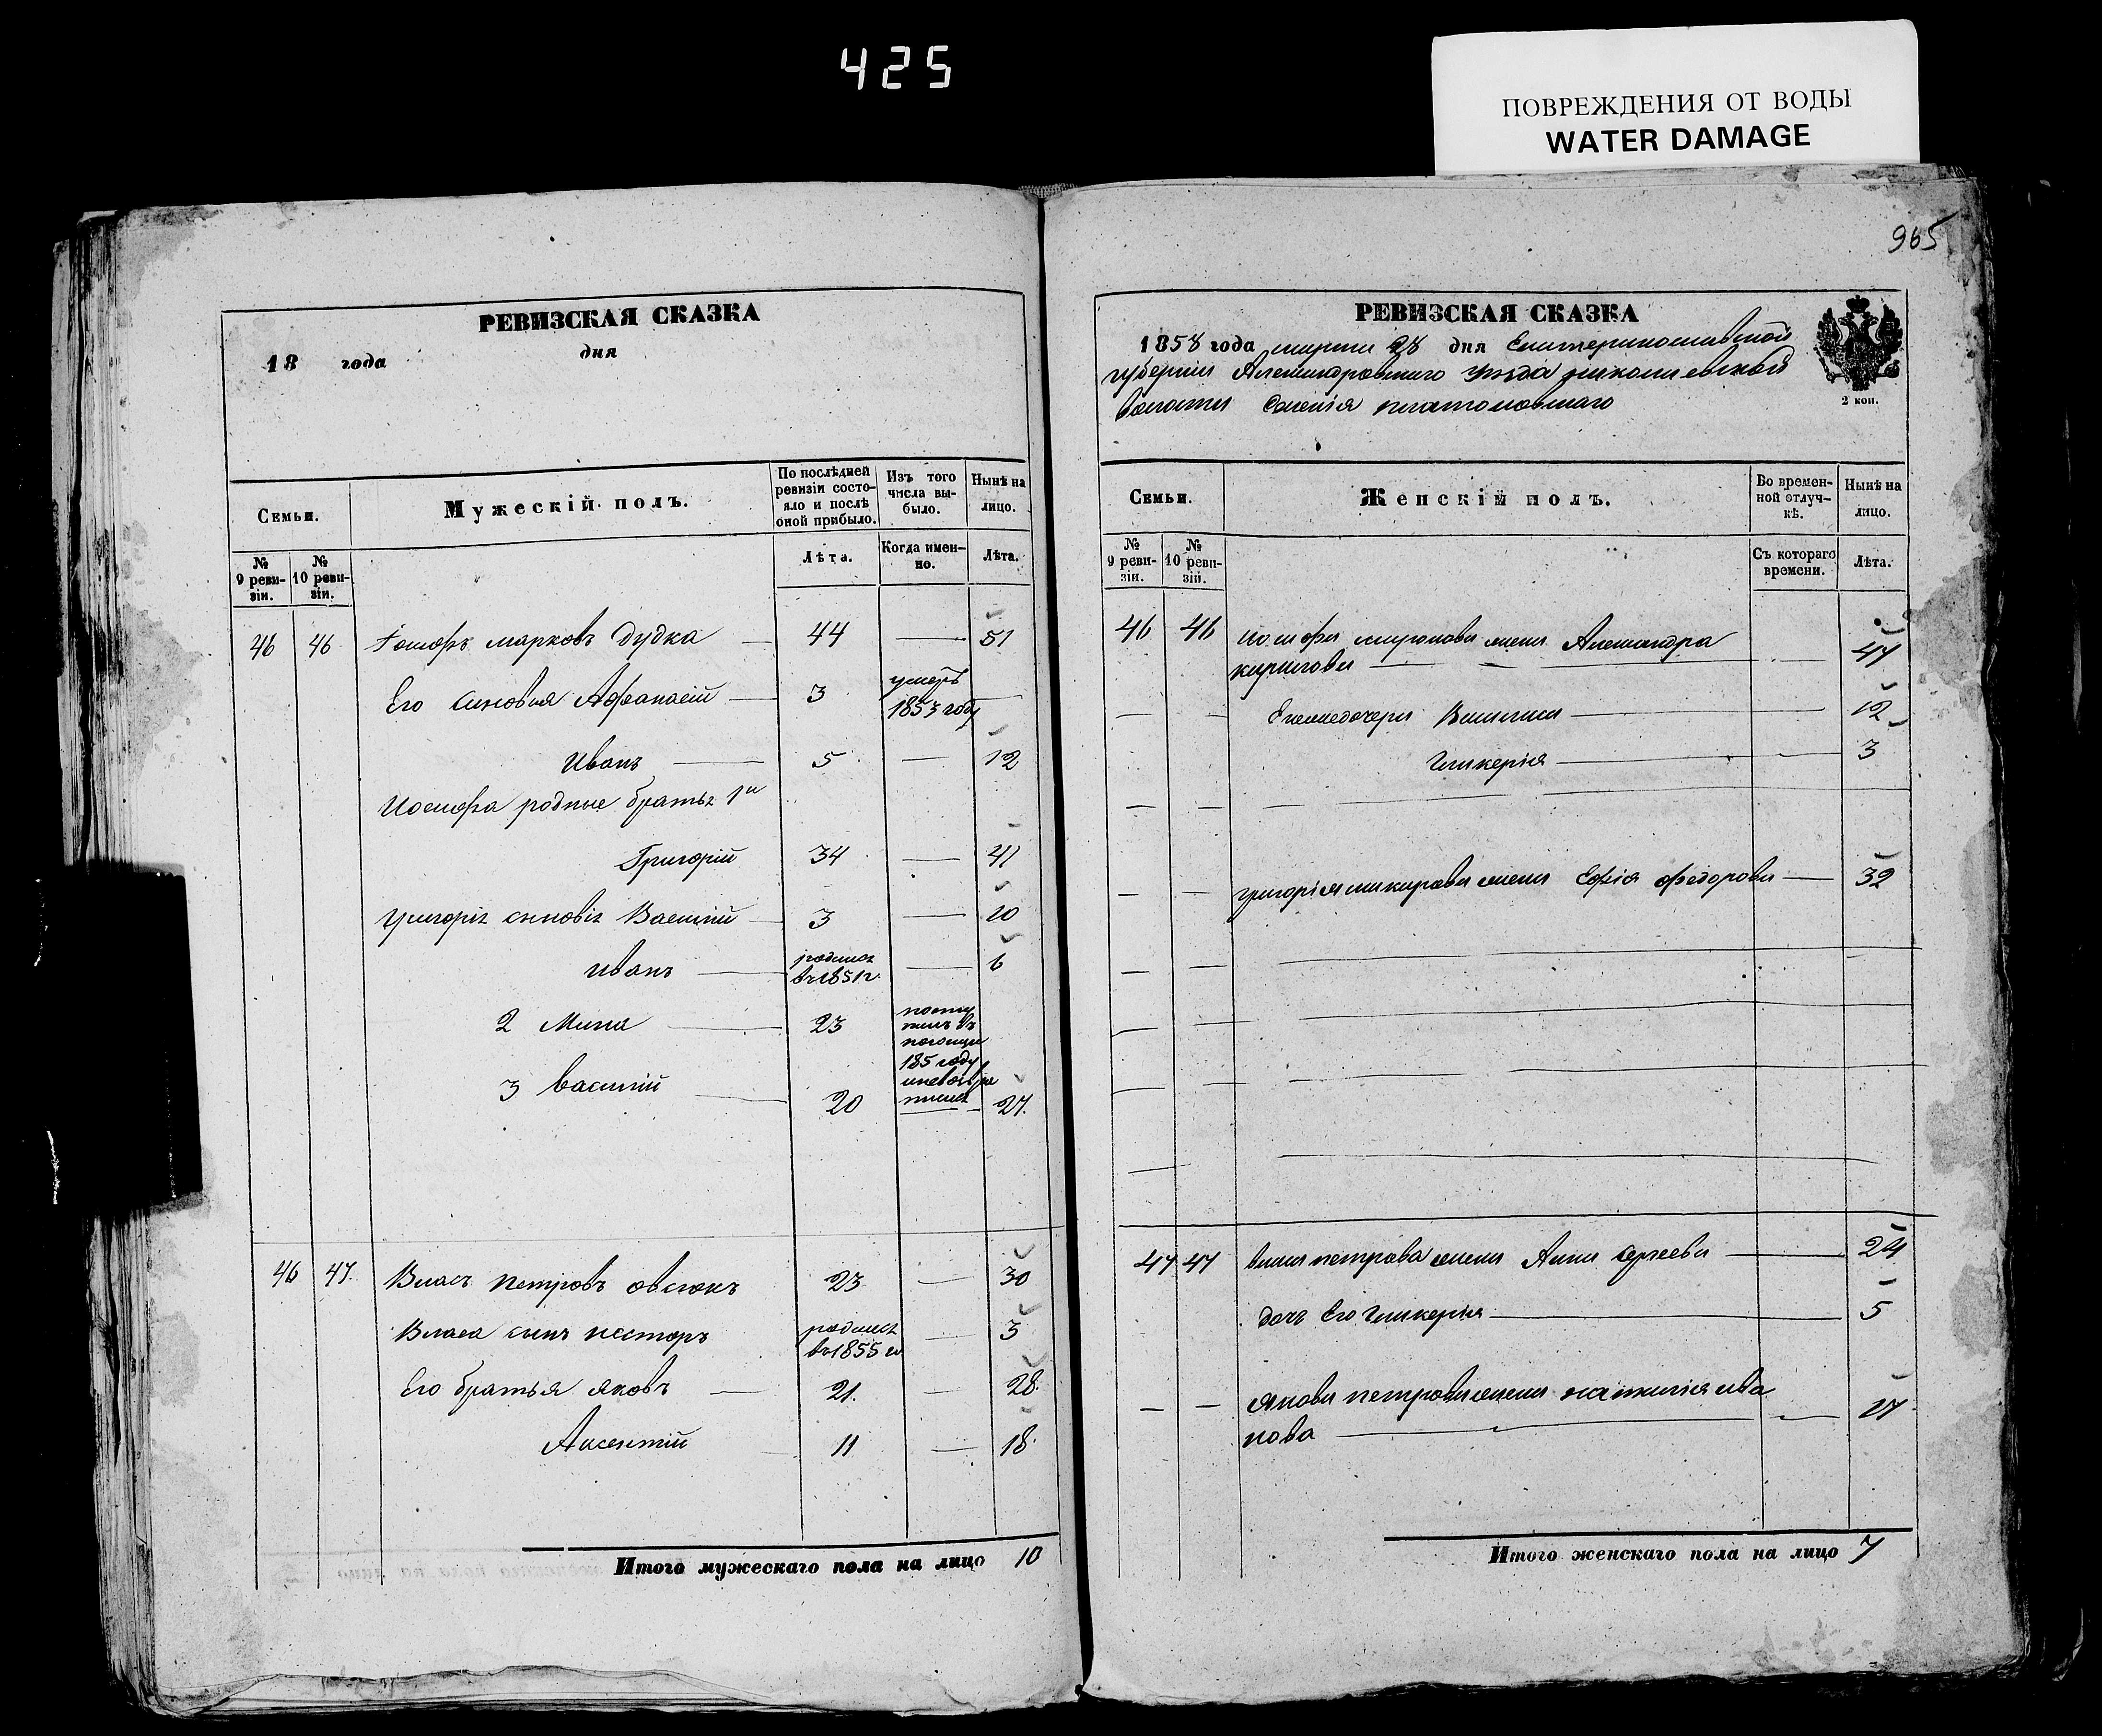 425
ПОВРЕЖДЕНИЯ ОТ ВОДЫ
WATER DAMAGE
РЕВИЗСКАЯ СКАЗКА
18 года дня
Семьи.
Мужескій полъ.
По послѣдней ревизіи состояло и послѣ оной прибыло.
Изъ того числа выбыло.
Нынѣ на лицо.
№ 9 ревизіи.
№ 10 ревизіи.
Лѣта.
Когда именно.
Лѣта.
46 46 марковъ Дудка — 44 — 51
Его сыновья Афанасій — 3 умеръ 1853 году —
Иванъ — 5 — 12
Иосифа родные братья 1й
Григорій 34 — 41
сыновья Василій — 3 — 10
иванъ — родился въ 1851 г. — 6
2 Мина — 23
185 году
3 василій — 20 — 27.
46 47. Власъ петровъ овсюкъ 23 — 30
Власа сынъ несторъ родился въ 1855 — 3
Его братья яковъ — 21. — 28.
Аксентій 11 — 18.
Итого мужескаго пола на лицо 10
965
РЕВИЗСКАЯ СКАЗКА
1858 года марта 28 дня Екатеринославской
губерніи Александровскаго уѣзда николаевской
волости селенія
2 коп.
Семьи.
Женскій полъ.
Во временной отлучкѣ.
Нынѣ на лицо.
№ 9 ревизіи.
№ 10 ревизіи.
Съ котораго времени.
Лѣта.
46 46 иосифа жена Александра
— 47
— — Василиса — 12
Гликерія — 3
— — жена Софія федорова — 32
47 47 власа петрова жена Анна сергеева — 24
дочь Его Гликерія — 5
— — якова петрова жена наталія ива
нова — 27
Итого женскаго пола на лицо 7